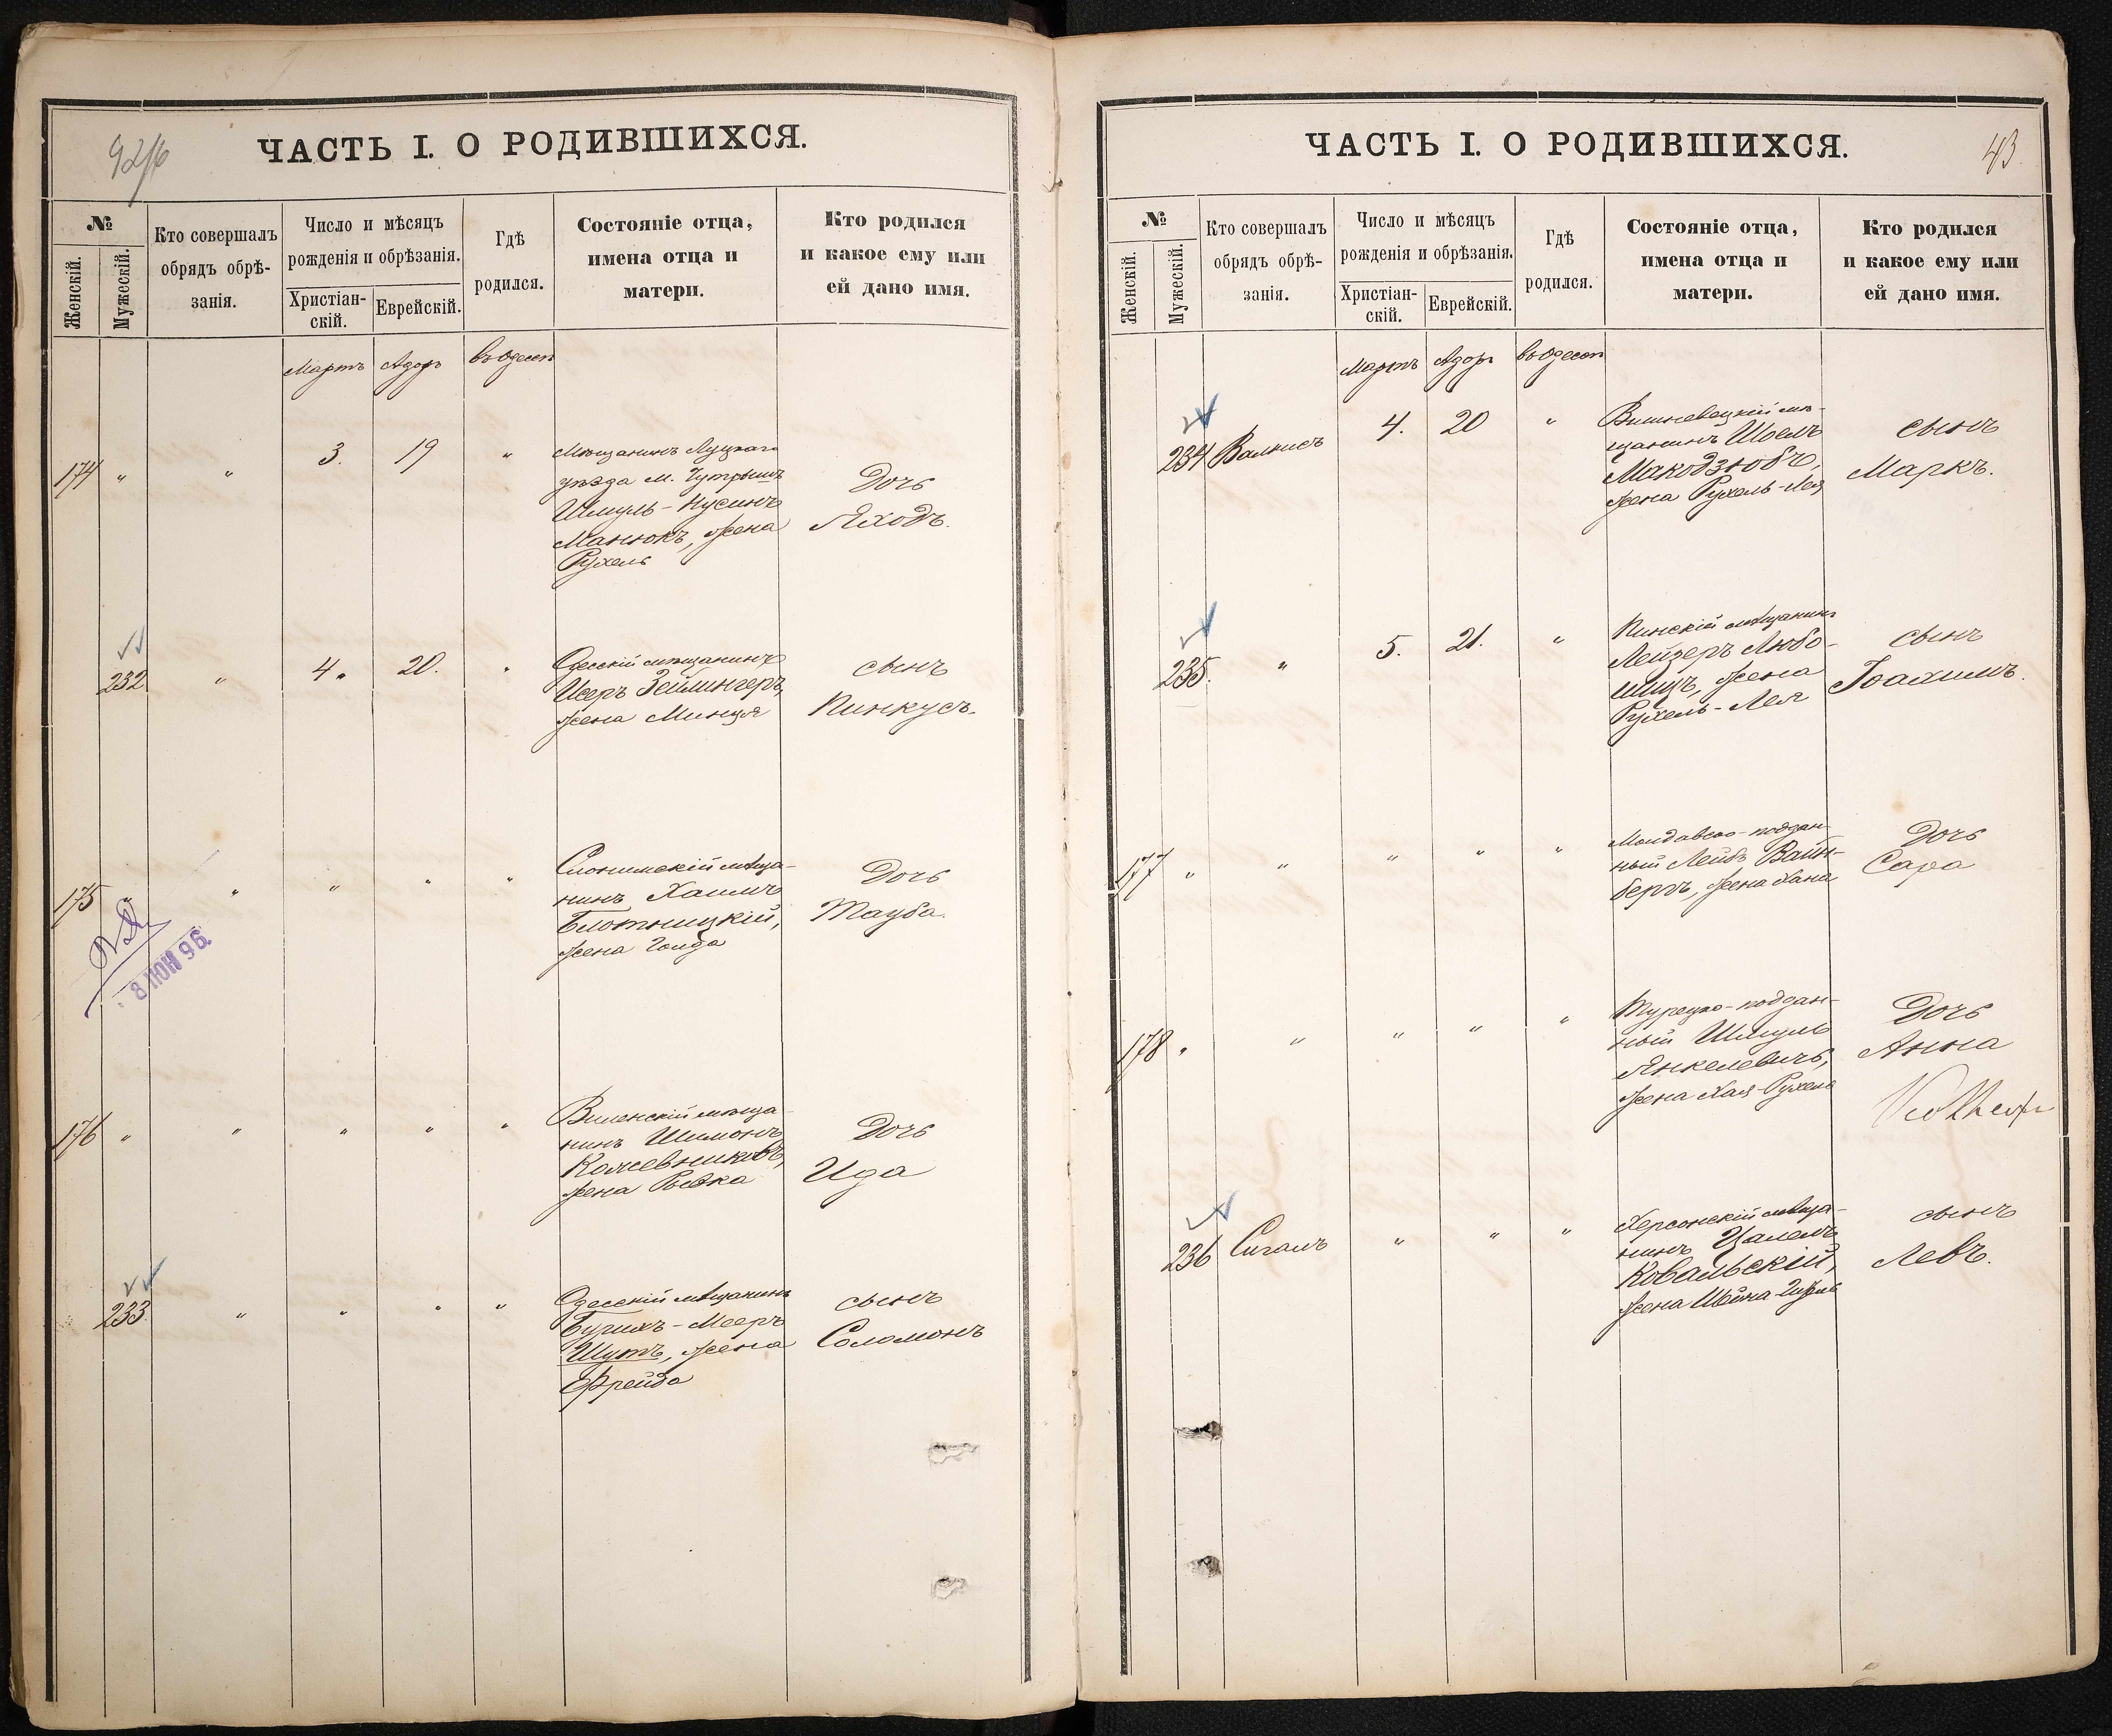 42/б
ЧАСТЬ I. О РОДИВШИХСЯ.
№
Женскій.
Мужескій.
Кто совершалъ
обрядъ обрѣ-
занія.
Число и мѣсяцъ
рожденія и обрѣзанія.
Христіан-
скій.
Еврейскій.
Гдѣ
родился.
Состояніе отца,
имена отца и
матери.
Кто родился
и какое ему или
ей дано имя.
Мартъ Адоръ въ Одессѣ
174 " " 3. 19 "
Мѣщанинъ Луцкаго
уѣзда м.
Шмуль-Нусинъ
Манюкъ, жена
Рухель
Дочь
Яходъ.
232 " 4. 20. "
Одесскій мѣщанинъ
Исеръ Зейлингеръ,
жена Минця
сынъ
Пинкусъ.
175 " " " " "
8 ІЮН 96.
Слонимскій мѣща-
нинъ Хаимъ
Блотницкій,
жена Голда
Дочь
Тауба.
176 " " " " "
Виленскій мѣща-
нинъ Шимонъ
Кожевниковъ,
жена Рывка
Дочь
Ида
233. " " " "
Одесскій мѣщанинъ
Бурихъ-Мееръ
Шутъ, жена
Фрейда
сынъ
Соломонъ
43.
ЧАСТЬ I. О РОДИВШИХСЯ.
№
Женскій.
Мужескій.
Кто совершалъ
обрядъ обрѣ-
занія.
Число и мѣсяцъ
рожденія и обрѣзанія.
Христіан-
скій.
Еврейскій.
Гдѣ
родился.
Состояніе отца,
имена отца и
матери.
Кто родился
и какое ему или
ей дано имя.
Мартъ Адоръ въ Одессѣ
234 Валкисъ 4. 20 "
Вишневецкій мѣ-
щанинъ Шоелъ
Макодзюбъ,
жена Рухель-Лея
сынъ
Маркъ.
235. " 5. 21. "
Пинскій мѣщанинъ
Лейзеръ Любо-
шицъ, жена
Рухель-Лея
сынъ
Іоахимъ.
177 " " " " "
Молдавско-поддан-
ный Лейбъ Вайн-
бергъ, жена Хана
Дочь
Сара
178 " " " " "
Турецко-поддан-
ный Шмуль
Янкелевичъ,
жена Хая-Рухель
Дочь
Анна
236 Сигалъ " " "
Херсонскій мѣща-
нинъ Цалелъ
Ковальскій,
жена Шейна-
сынъ
Левъ.